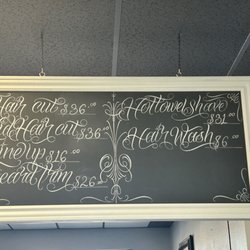 Hair cut $36.00
Hair cut $36.00
Line up $16.00
Beard Trim $26.00
Hot towel shave $31.00
Hair Wash $6.00